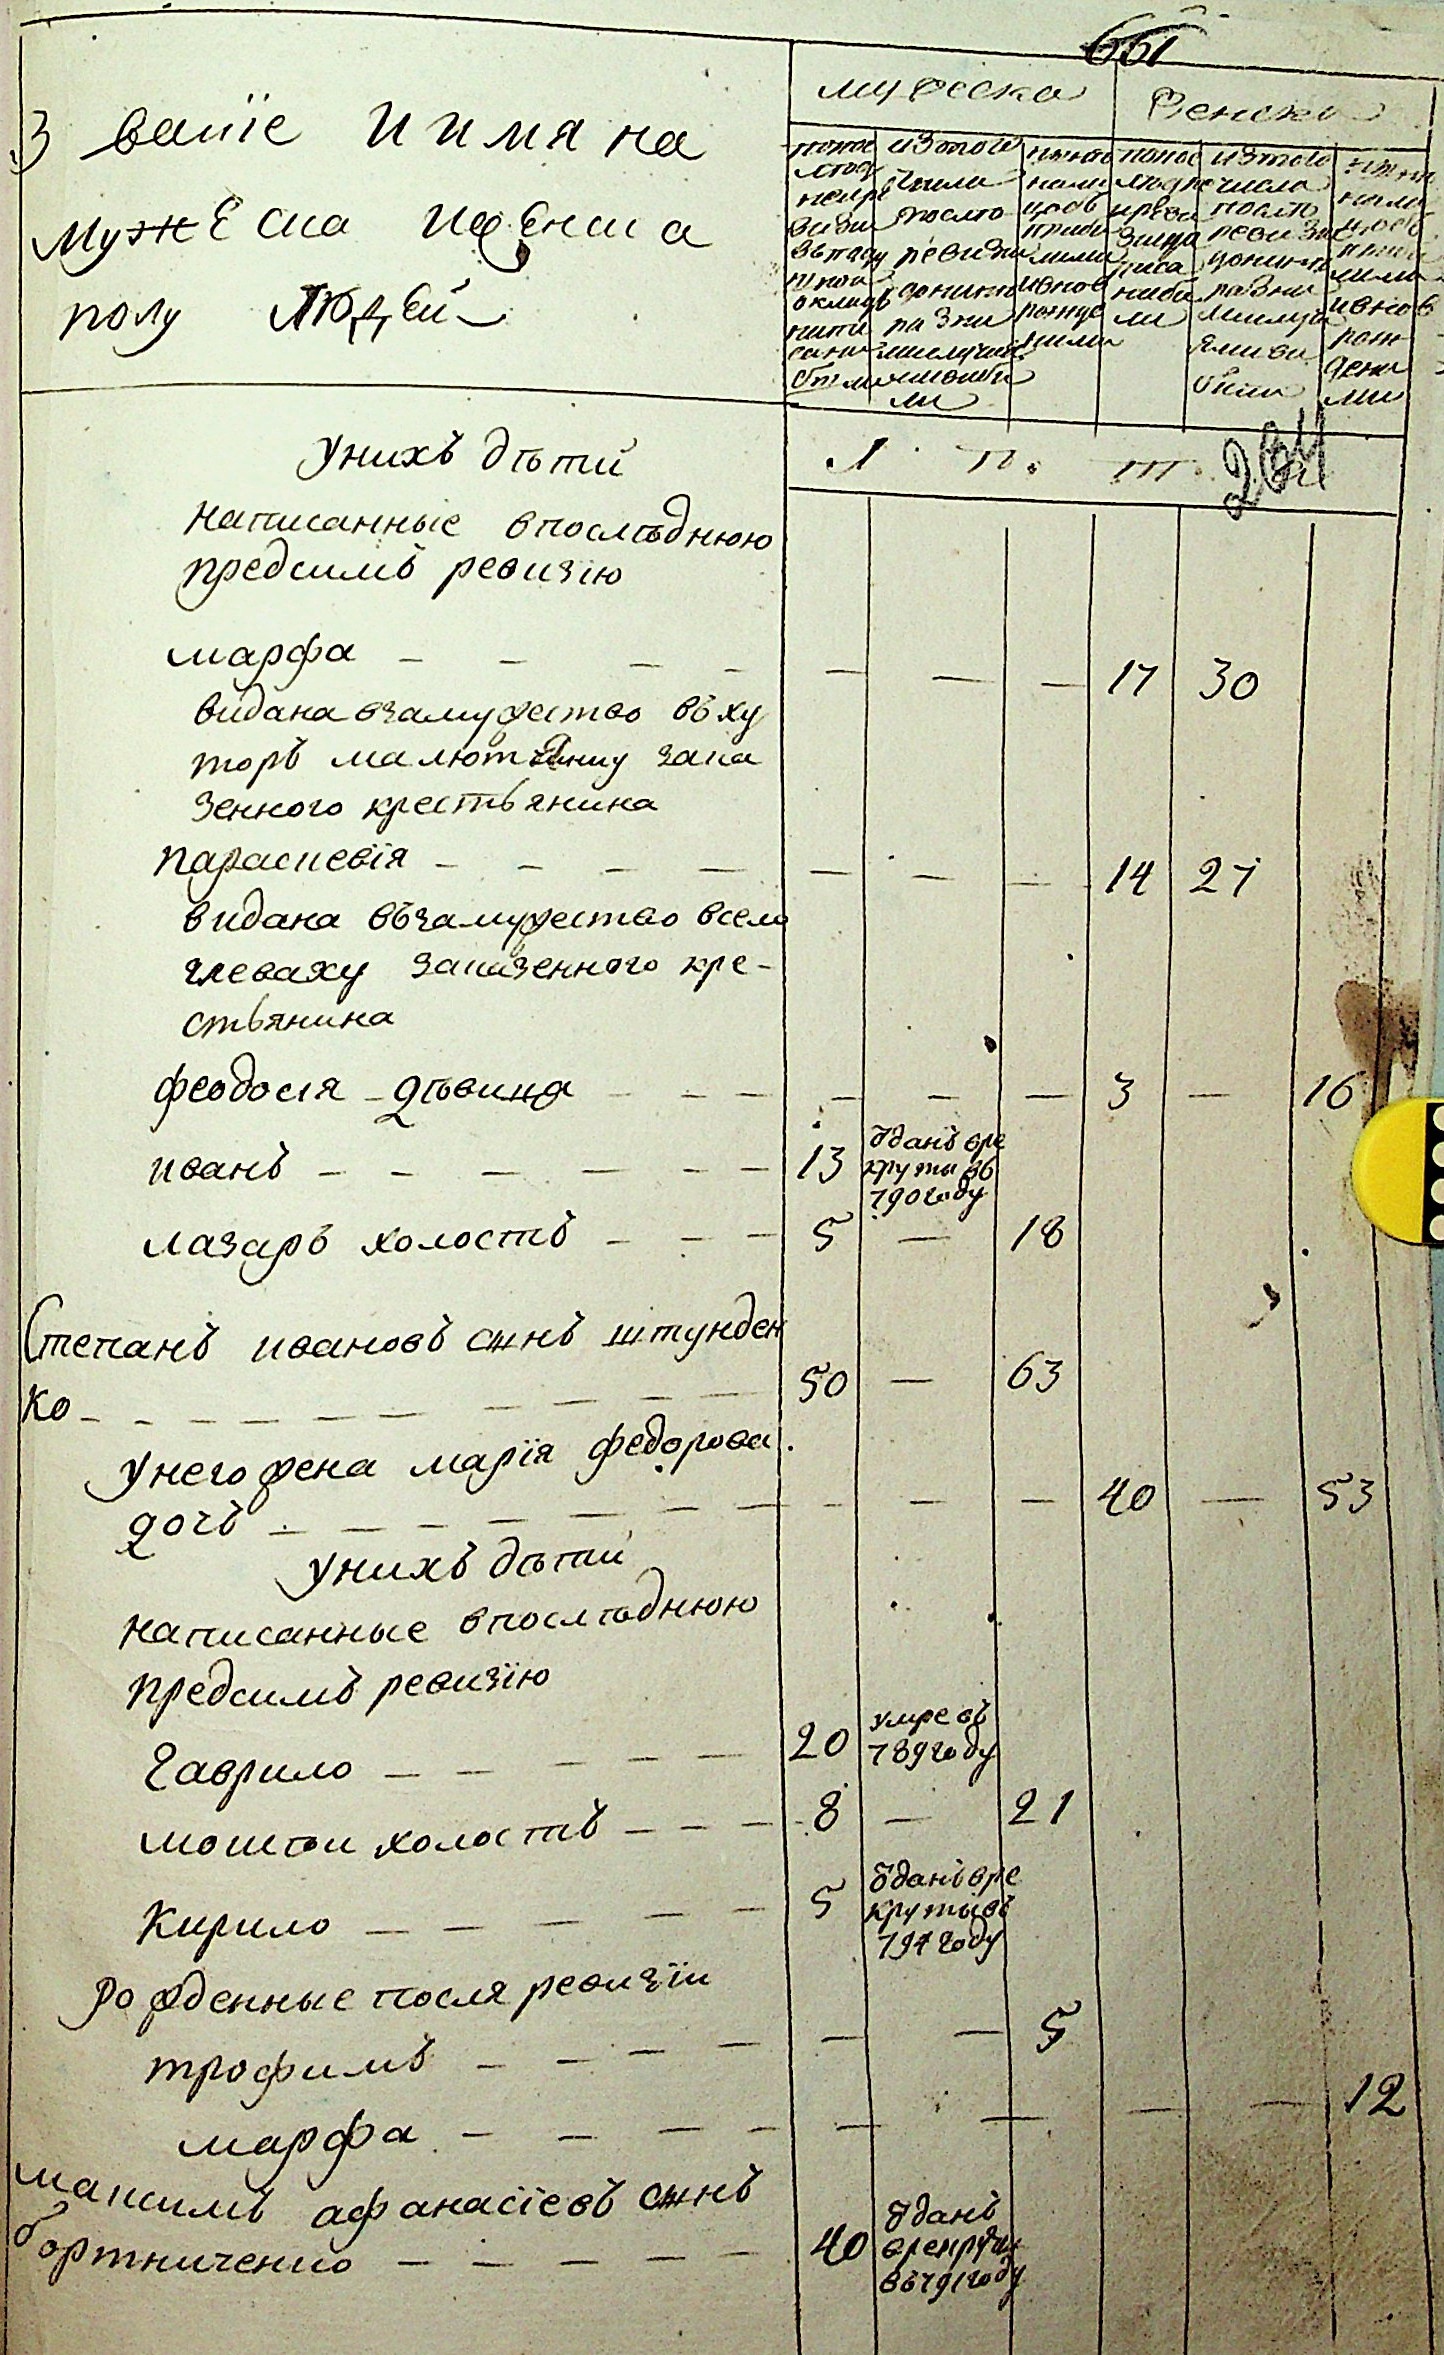 661
Званіе и имяна
мужеска иженска
полу людей
мужеска
женска
попос
лѣд
ней ре
визи
из того
числа
после
ревизи
попос
ледне
из того
числа
после
ревизи
Л
П
т
а
264
Унихъ дѣти
написанные впослѣднюю
предсимъ ревизію
марфа — — — — — — — 17 30
видана взамужество въ ху
торъ малютянку зака
зенного крестьянина
параскевія — — — — — — — 14 27
видана възамужество всело
глеваху заказенного кре-
стьянина
феодосія — дѣвица — — — — — — 3 — 16
иванъ — — — — — — 13 ѿданъ вре
круты въ
790 году
лазаръ холостъ — — — 5 — 18
Степанъ ивановъ сынъ штунден
ко — — — — — — — — 50 — 63
Унего жена марія федорова
дочь — — — — — — — — — 40 — 53
Унихъ дѣти
написанные впослѣднюю
предсимъ ревизію
Гаврило — — — — — 20 умре въ
789 году
мойсей холостъ — — — 8 — 21
Кирило — — — — — 5 ѿданъ вре
круты въ
794 году
Рожденные после ревизіи
трофимъ — — — — — — 5
марфа — — — — — — — — 12
максимъ афанасіевъ сынъ
бортниченко — — — — — 40 ѿданъ
врекруты
въ 791 году